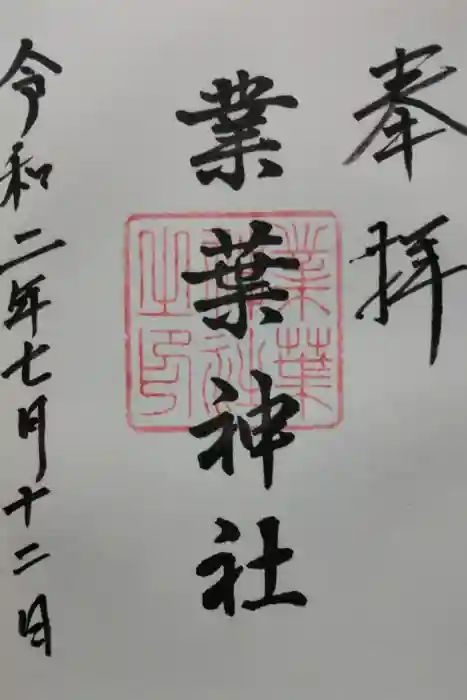 奉拝
業葉神社
業葉神社之印
令和二年七月十二日